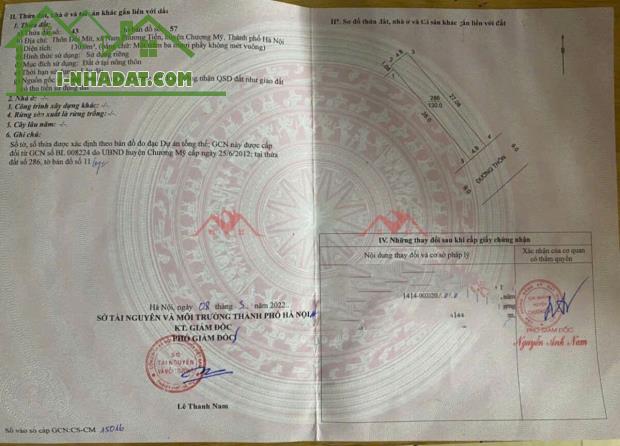 II. Thửa đất, nhà ở và tài sản khác gắn liền với đất
1. Thửa đất:
a) Thửa đất số: 43 tờ bản đồ số: 57
b) Địa chỉ: Thôn Đồi Mít, xã Nam Phương Tiến, huyện Chương Mỹ, Thành phố Hà Nội
c) Diện tích: 130.0m², (bằng chữ: Một trăm ba mươi phẩy không mét vuông)
d) Hình thức sử dụng: Sử dụng riêng
đ) Mục đích sử dụng: Đất ở tại nông thôn
e) Thời hạn sử dụng:
g) Nguồn gốc nhận QSD đất như giao đất
có thu tiền sử dụng đất
i-NHADAT.COM
2. Nhà ở: -/-
3. Công trình xây dựng khác: -/-
4. Rừng sản xuất là rừng trồng: -/-
5. Cây lâu năm: -/-
6. Ghi chú:
Số tờ, số thửa được xác định theo bản đồ đo đạc Dự án tổng thể; GCN này được cấp
đổi từ GCN số BL 008224 do UBND huyện Chương Mỹ cấp ngày 25/6/2012; tại thửa
đất số 286, tờ bản đồ số 11
Hà Nội, ngày 08 tháng 3 năm 2022
SỞ TÀI NGUYÊN VÀ MÔI TRƯỜNG THÀNH PHỐ HÀ NỘI
KT. GIÁM ĐỐC
PHÓ GIÁM ĐỐC
SỞ
TÀI NGUYÊN
VÀ MÔI TRƯỜNG
Lê Thanh Nam
Số vào sổ cấp GCN: CS-CM 15016
III. Sơ đồ thửa đất, nhà ở và tài sản khác gắn liền với đất
4.9
286
130.0
27.08
26.0
4.9
6.0
ĐƯỜNG THÔN
6.0
IV. Những thay đổi sau khi cấp giấy chứng nhận
Nội dung thay đổi và cơ sở pháp lý
Xác nhận của cơ quan
có thẩm quyền
năm
PHÓ GIÁM ĐỐC
Nguyễn Anh Nam